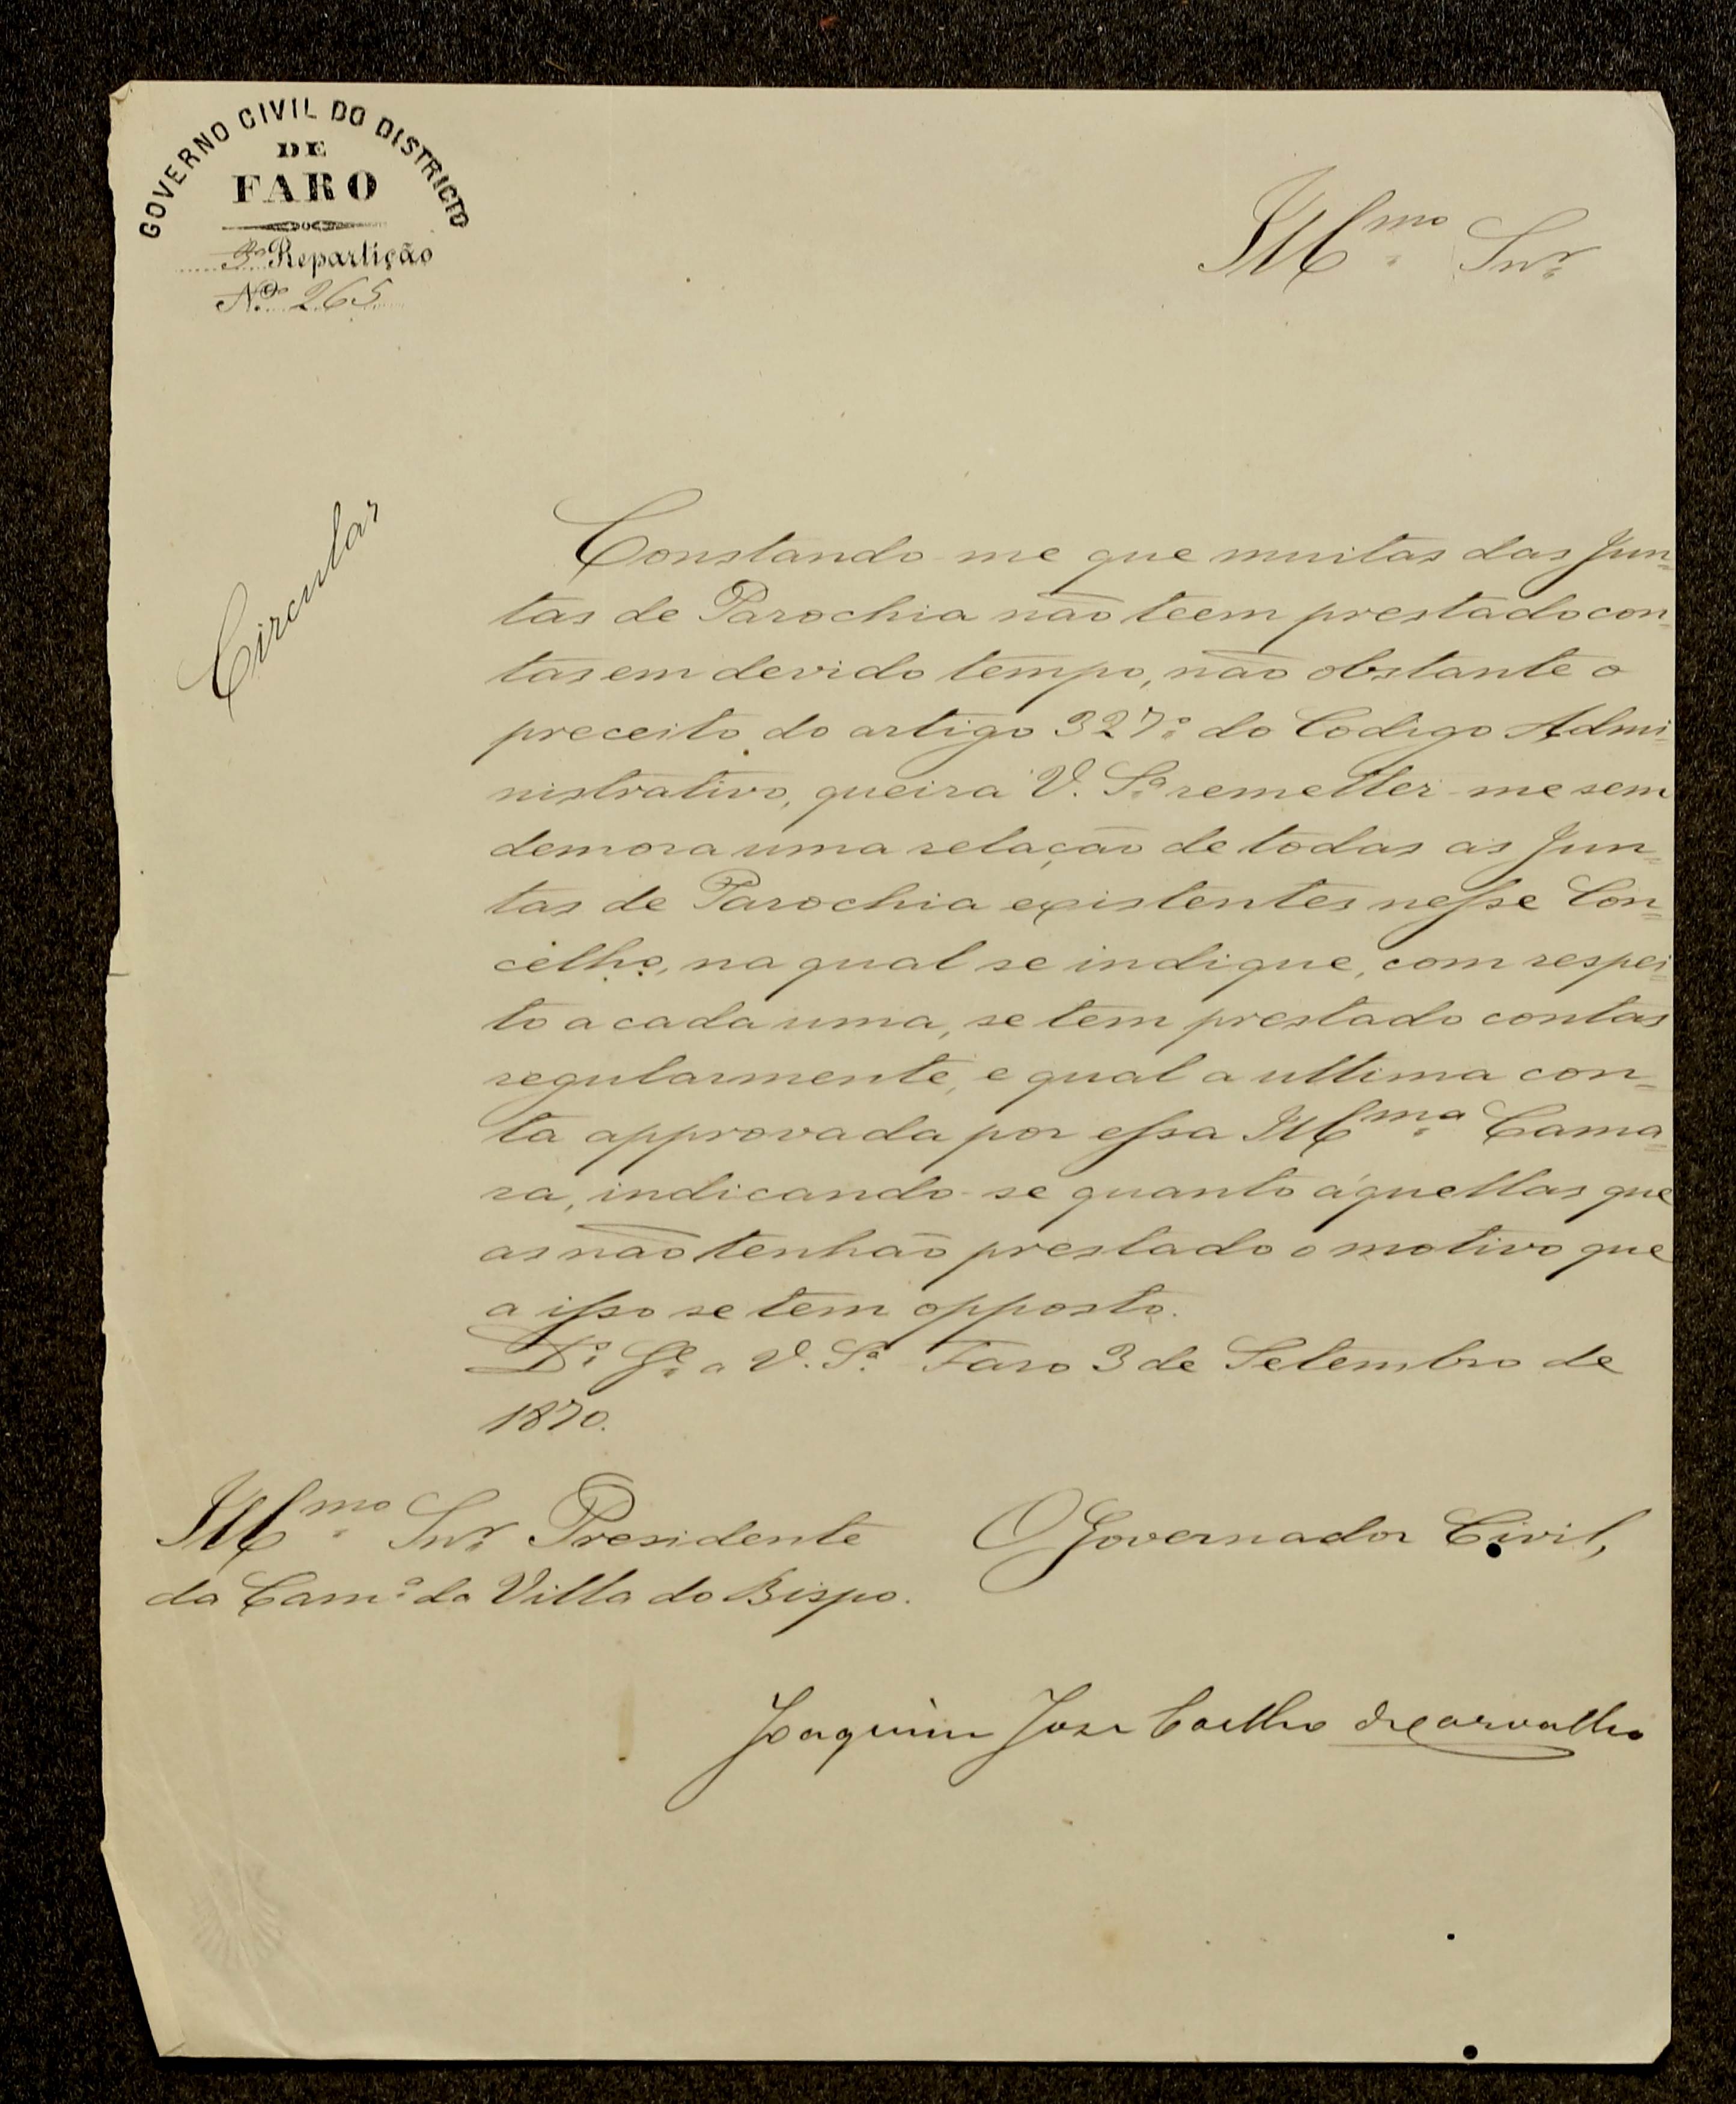 GOVERNO CIVIL DO DISTRICTO
DE
FARO
3ª Repartição
Nº 265
Illmo Snr.
Circular
Constando-me que muitas das Jun=
tas de Parochia não teem prestado con=
tas em devido tempo, não obstante o
preceito do artigo 327º do Codigo Admi=
nistrativo, queira V. Sª remetter-me sem
demora uma relação de todas as Jun=
tas de Parochia existentes nesse Con=
celho, na qual se indique, com respei=
to a cada uma, se tem prestado contas
regularmente, e qual a ultima con=
ta approvada por essa Illma Cama=
ra, indicando-se quanto áquellas que
as não tenhão prestado o motivo que
a isso se tem opposto.
Ds. Ge. a V. Sª Faro 3 de Setembro de
1870.
Illmo Snr. Presidente
da Camª da Villa do Bispo.
O Governador Civil,
Joaquim José Coelho de Carvalho